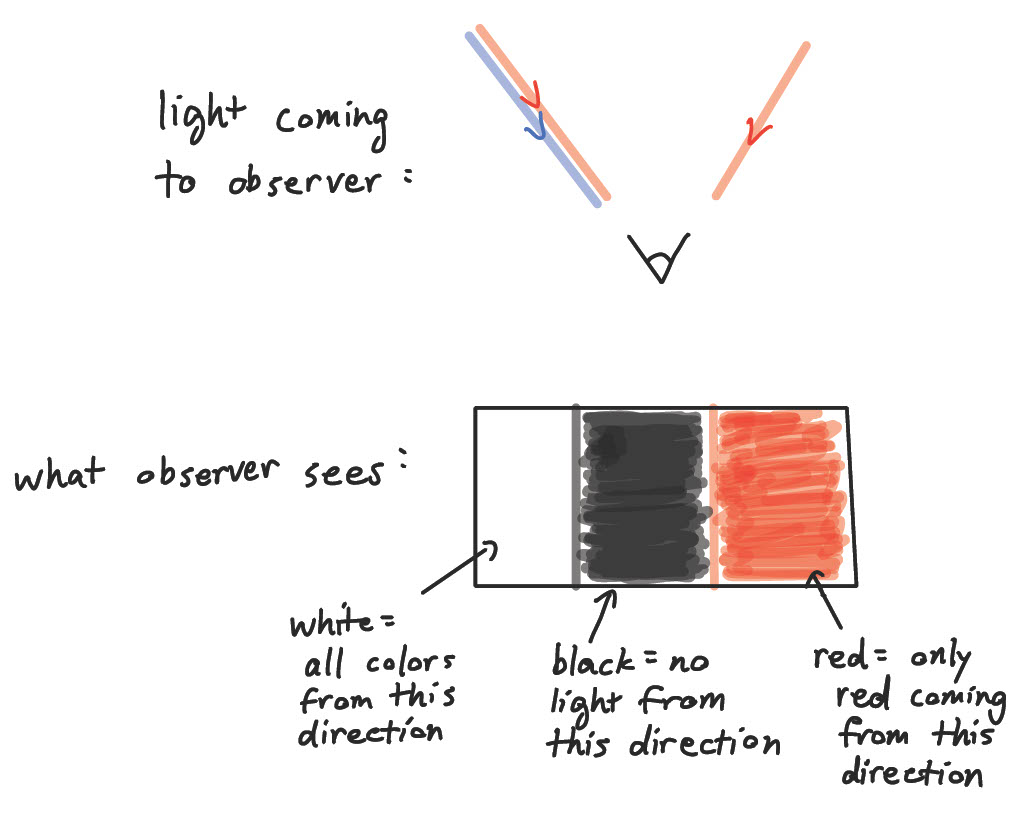 light coming
to observer :
what observer sees :
white =
all colors
from this
direction
black = no
light from
this direction
red = only
red coming
from this
direction